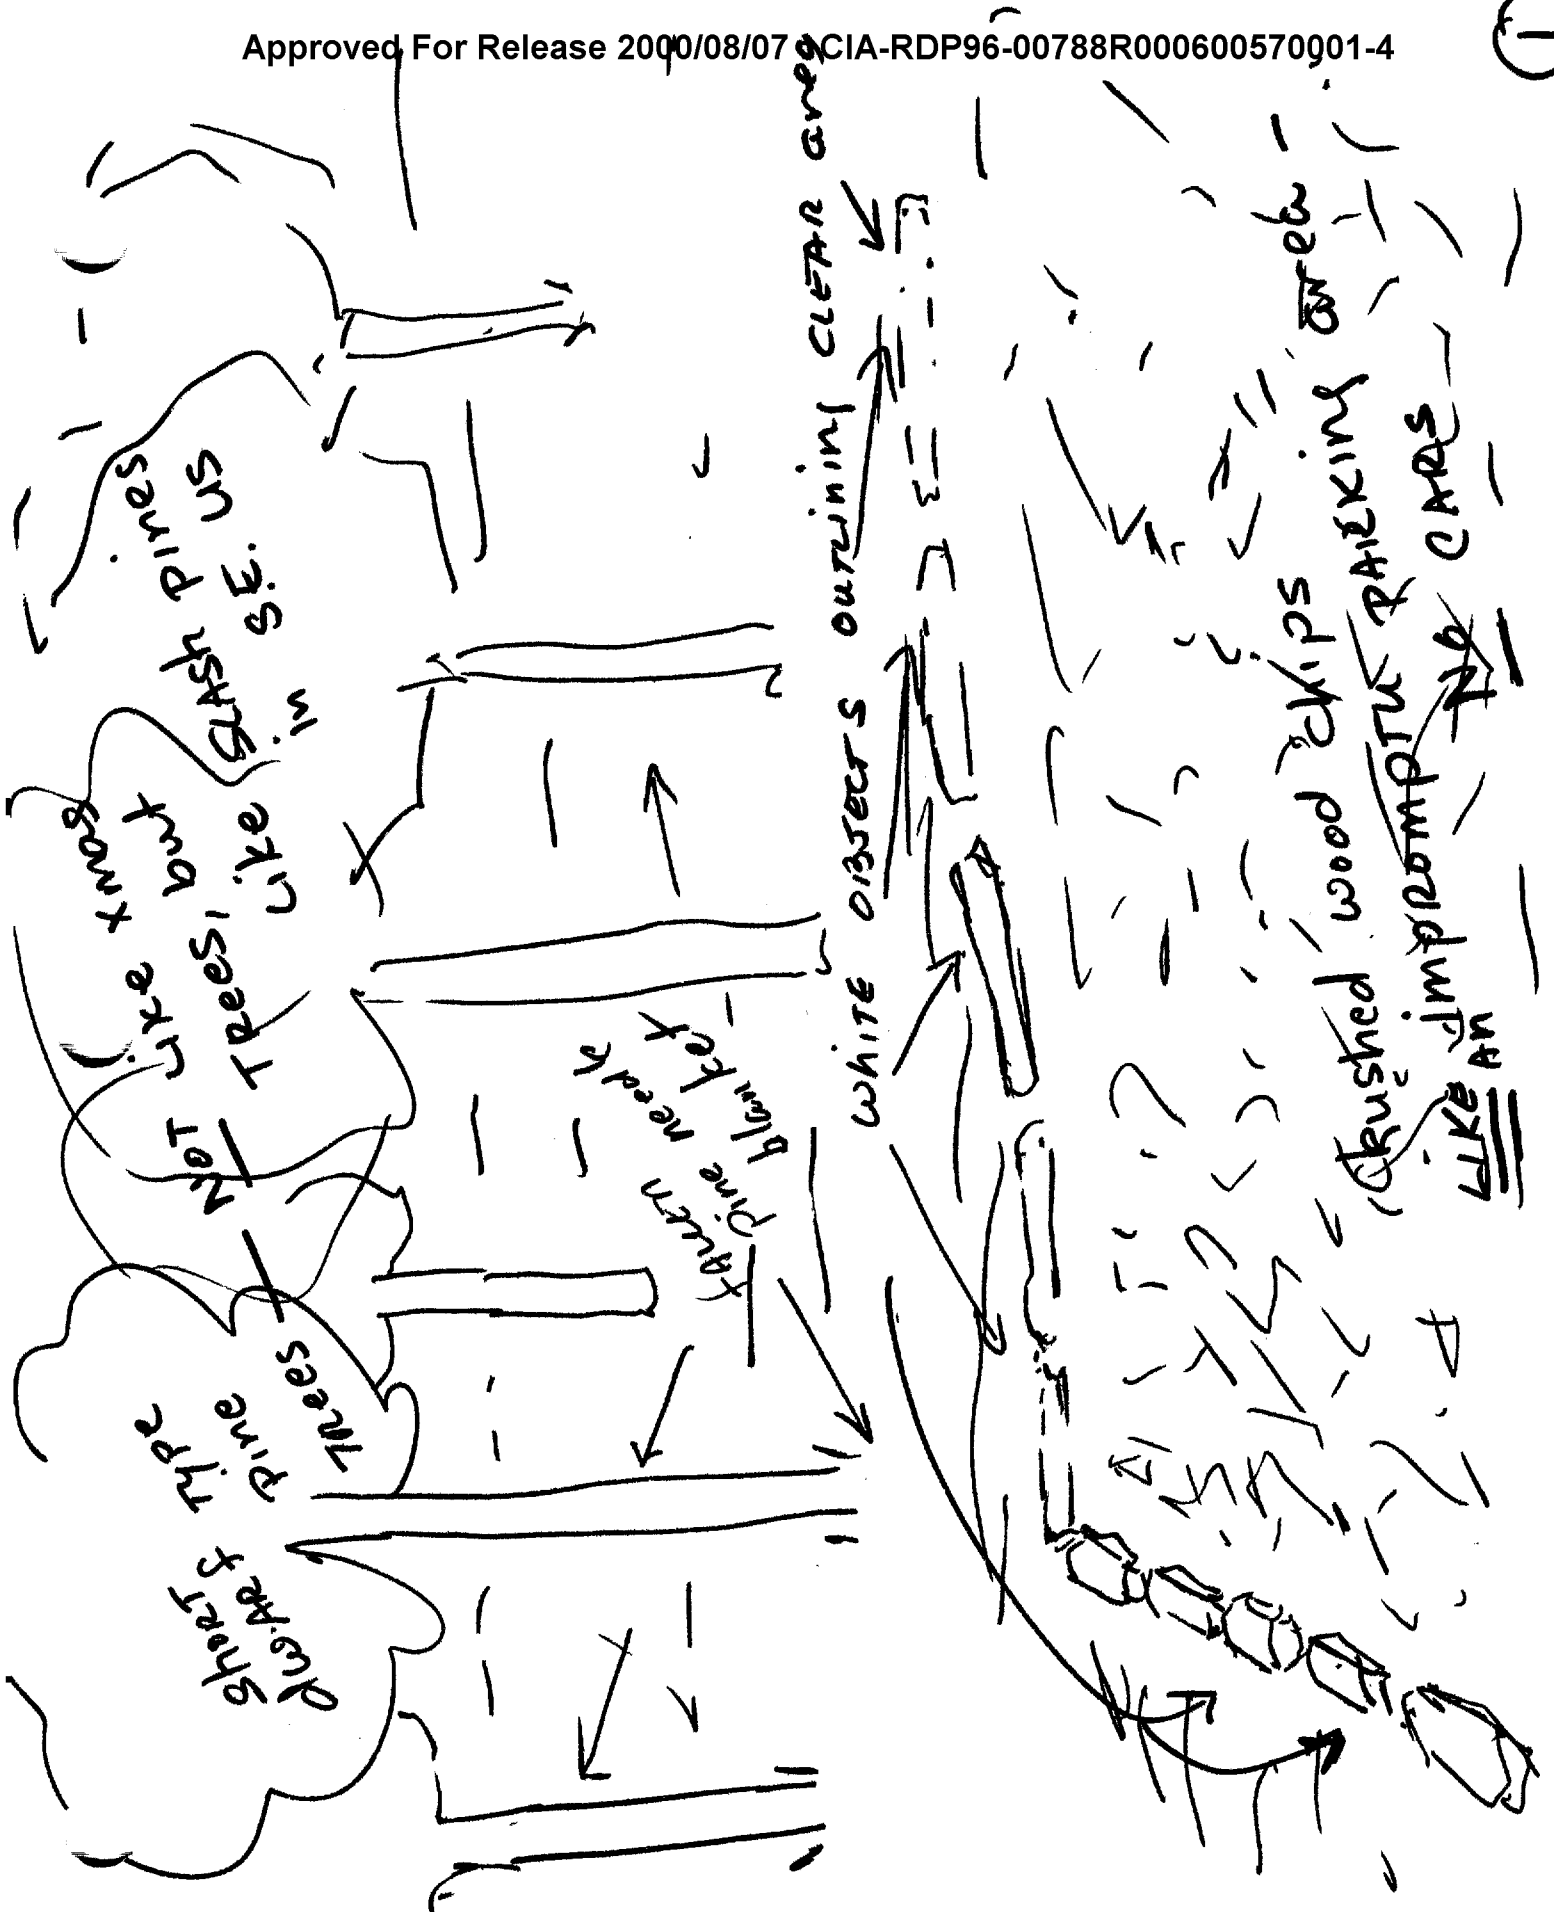 Approved For Release 2000/08/07 : CIA-RDP96-00788R000600570001-4
1
Short Type
dwarf pine
Trees — NOT like xmas
Trees, but
like slash pines
in S.E. US
fallen
pine needle
blanket —
White Objects outlining Clear area
Crushed wood chips
LIKE AN impromptu parking area —
No CARS